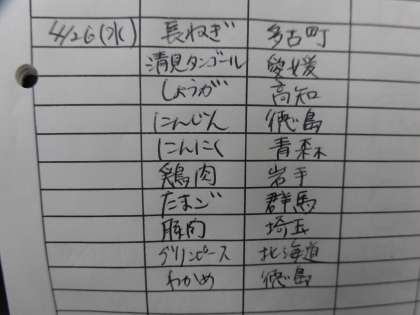 4/26(水) 長ねぎ 多古町
清見タンゴール 愛媛
しょうが 高知
にんじん 徳島
にんにく 青森
鶏肉 岩手
たまご 群馬
豚肉 埼玉
グリンピース 北海道
わかめ 徳島